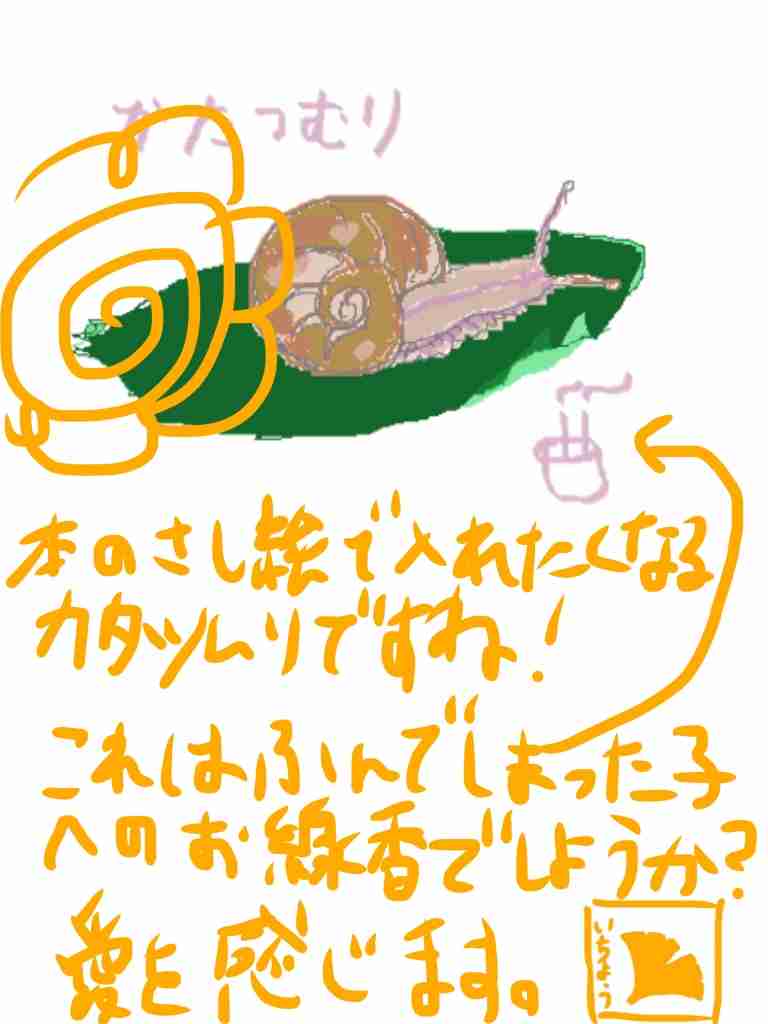 かたつむり
本のさし絵で入れたくなる
カタツムリですね!
これはふんでしまった子
へのお線香でしょうか?
愛を感じます。
いちょう